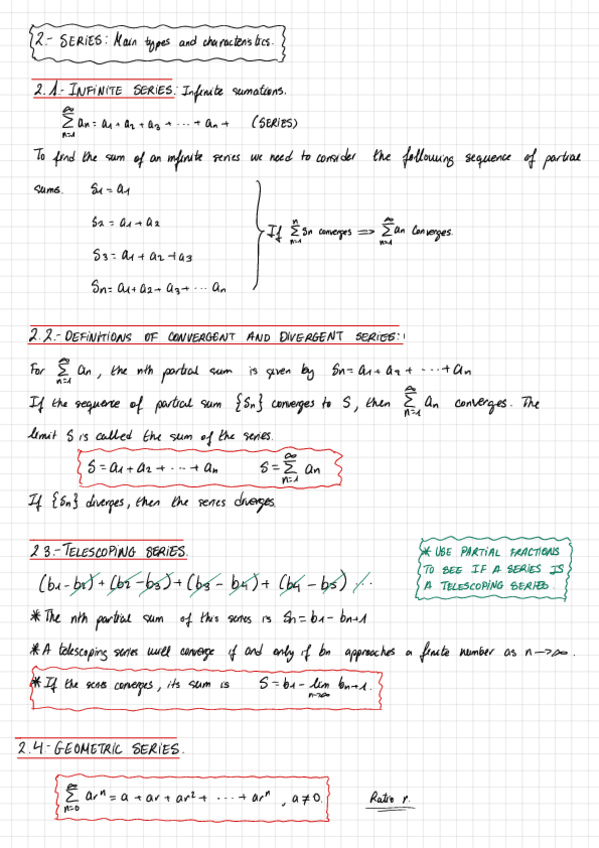 2.- SERIES: Main types and characteristics.
2.1.- INFINITE SERIES: Infinite sumations.
∞∑n=1 an = a1 + a2 + a3 + ··· + an + (SERIES)
To find the sum of an infinite series we need to consider the following sequence of partial
sums. S1 = a1
S2 = a1 + a2
S3 = a1 + a2 + a3
Sn = a1 + a2 + a3 + ··· an
If n∑n=1 Sn converges => ∞∑n=1 an converges.
2.2.- DEFINITIONS OF CONVERGENT AND DIVERGENT SERIES:
For ∞∑n=1 an, the nth partial sum is given by Sn = a1 + a2 + ··· + an
If the sequence of partial sum {Sn} converges to S, then ∞∑n=1 an converges. The
limit S is called the sum of the series.
S = a1 + a2 + ··· + an S = ∞∑n=1 an
If {Sn} diverges, then the series diverges.
2.3.- TELESCOPING SERIES.
(b1 - b2) + (b2 - b3) + (b3 - b4) + (b4 - b5) ···
* USE PARTIAL FRACTIONS
TO SEE IF A SERIES IS
A TELESCOPING SERIES.
* The nth partial sum of this series is Sn = b1 - bn+1
* A telescoping series will converge if and only if bn approaches a finite number as n -> ∞.
* If the series converges, its sum is S = b1 - lim n->∞ bn+1.
2.4.- GEOMETRIC SERIES.
∞∑n=0 ar^n = a + ar + ar² + ··· + ar^n , a ≠ 0. Ratio r.